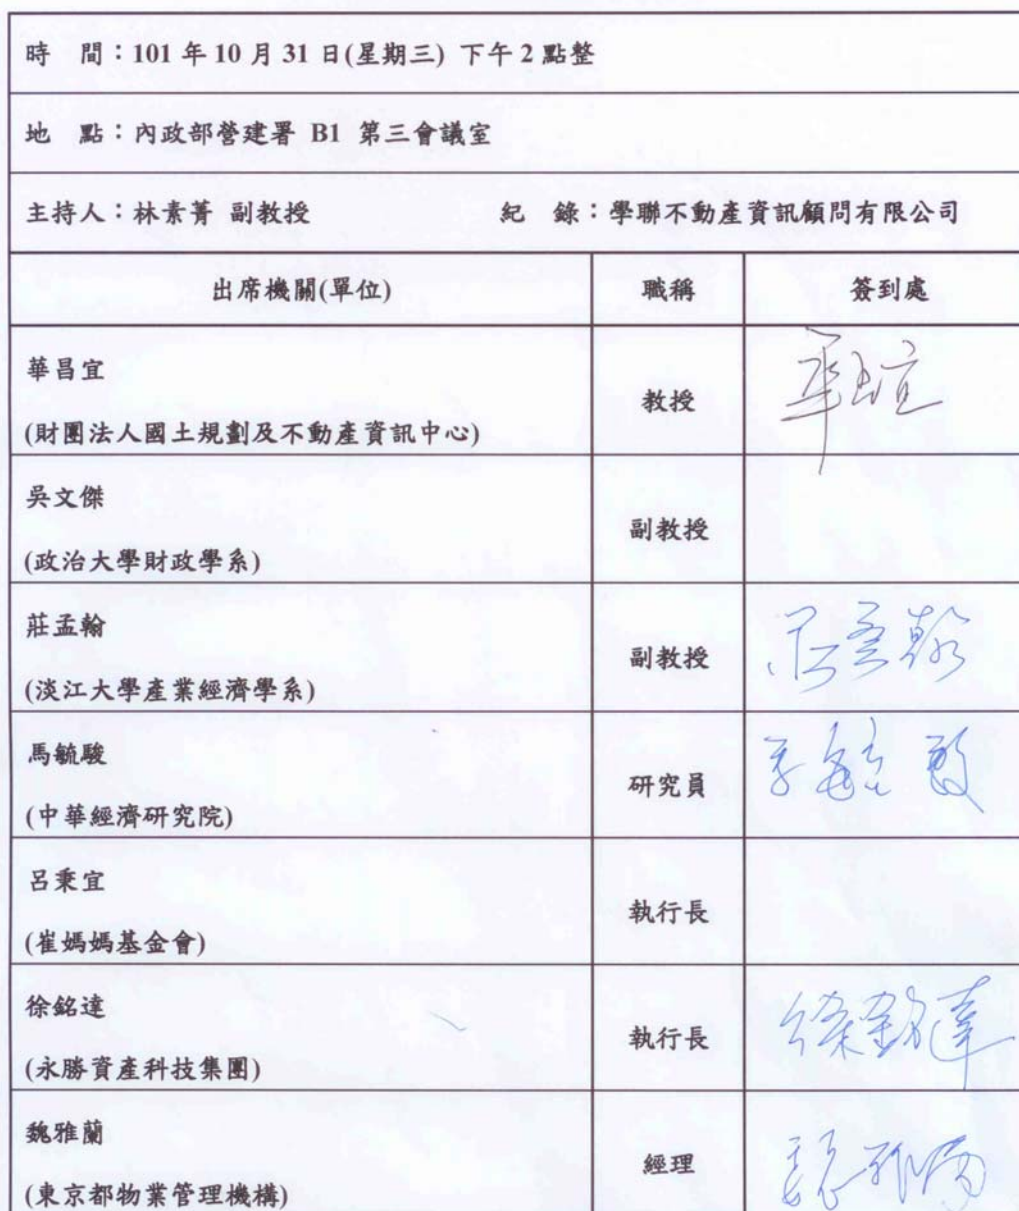 時　間：101 年 10 月 31 日(星期三) 下午 2 點整
地　點：內政部營建署 B1 第三會議室
主持人：林素菁 副教授　紀　錄：學聯不動產資訊顧問有限公司
出席機關(單位)　職稱　簽到處
華昌宜
(財團法人國土規劃及不動產資訊中心)
教授　華昌宜
吳文傑
(政治大學財政學系)
副教授
莊孟翰
(淡江大學產業經濟學系)
副教授　莊孟翰
馬毓駿
(中華經濟研究院)
研究員　馬毓駿
呂秉宜
(崔媽媽基金會)
執行長
徐銘達
(永勝資產科技集團)
執行長　徐銘達
魏雅蘭
(東京都物業管理機構)
經理　魏雅蘭